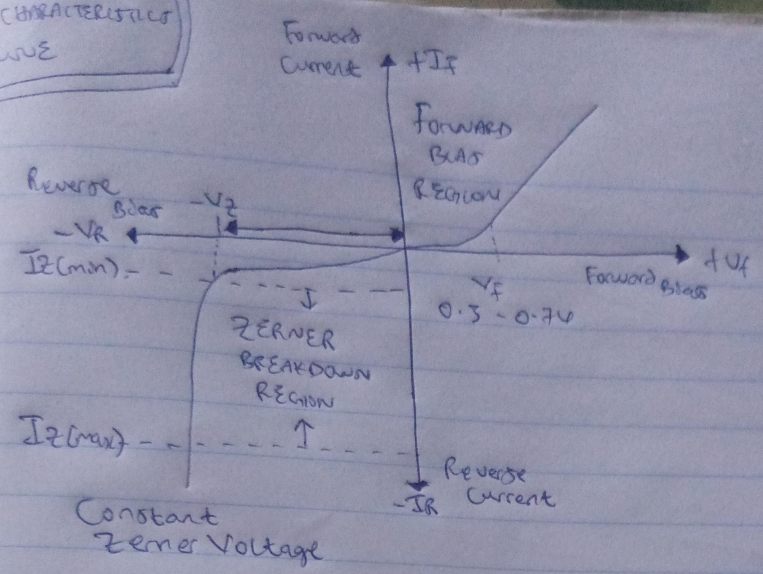 CHARACTERISTICS
Forward
Current
+IF
FORWARD
BIAS
REGION
Reverse
Bias
-VZ
-VR
+Vf
IZ(min)
Forward Bias
VF
0.3 - 0.7V
ZERNER
BREAKDOWN
REGION
IZ(max)
Reverse
Current
-IR
Constant
Zerner Voltage